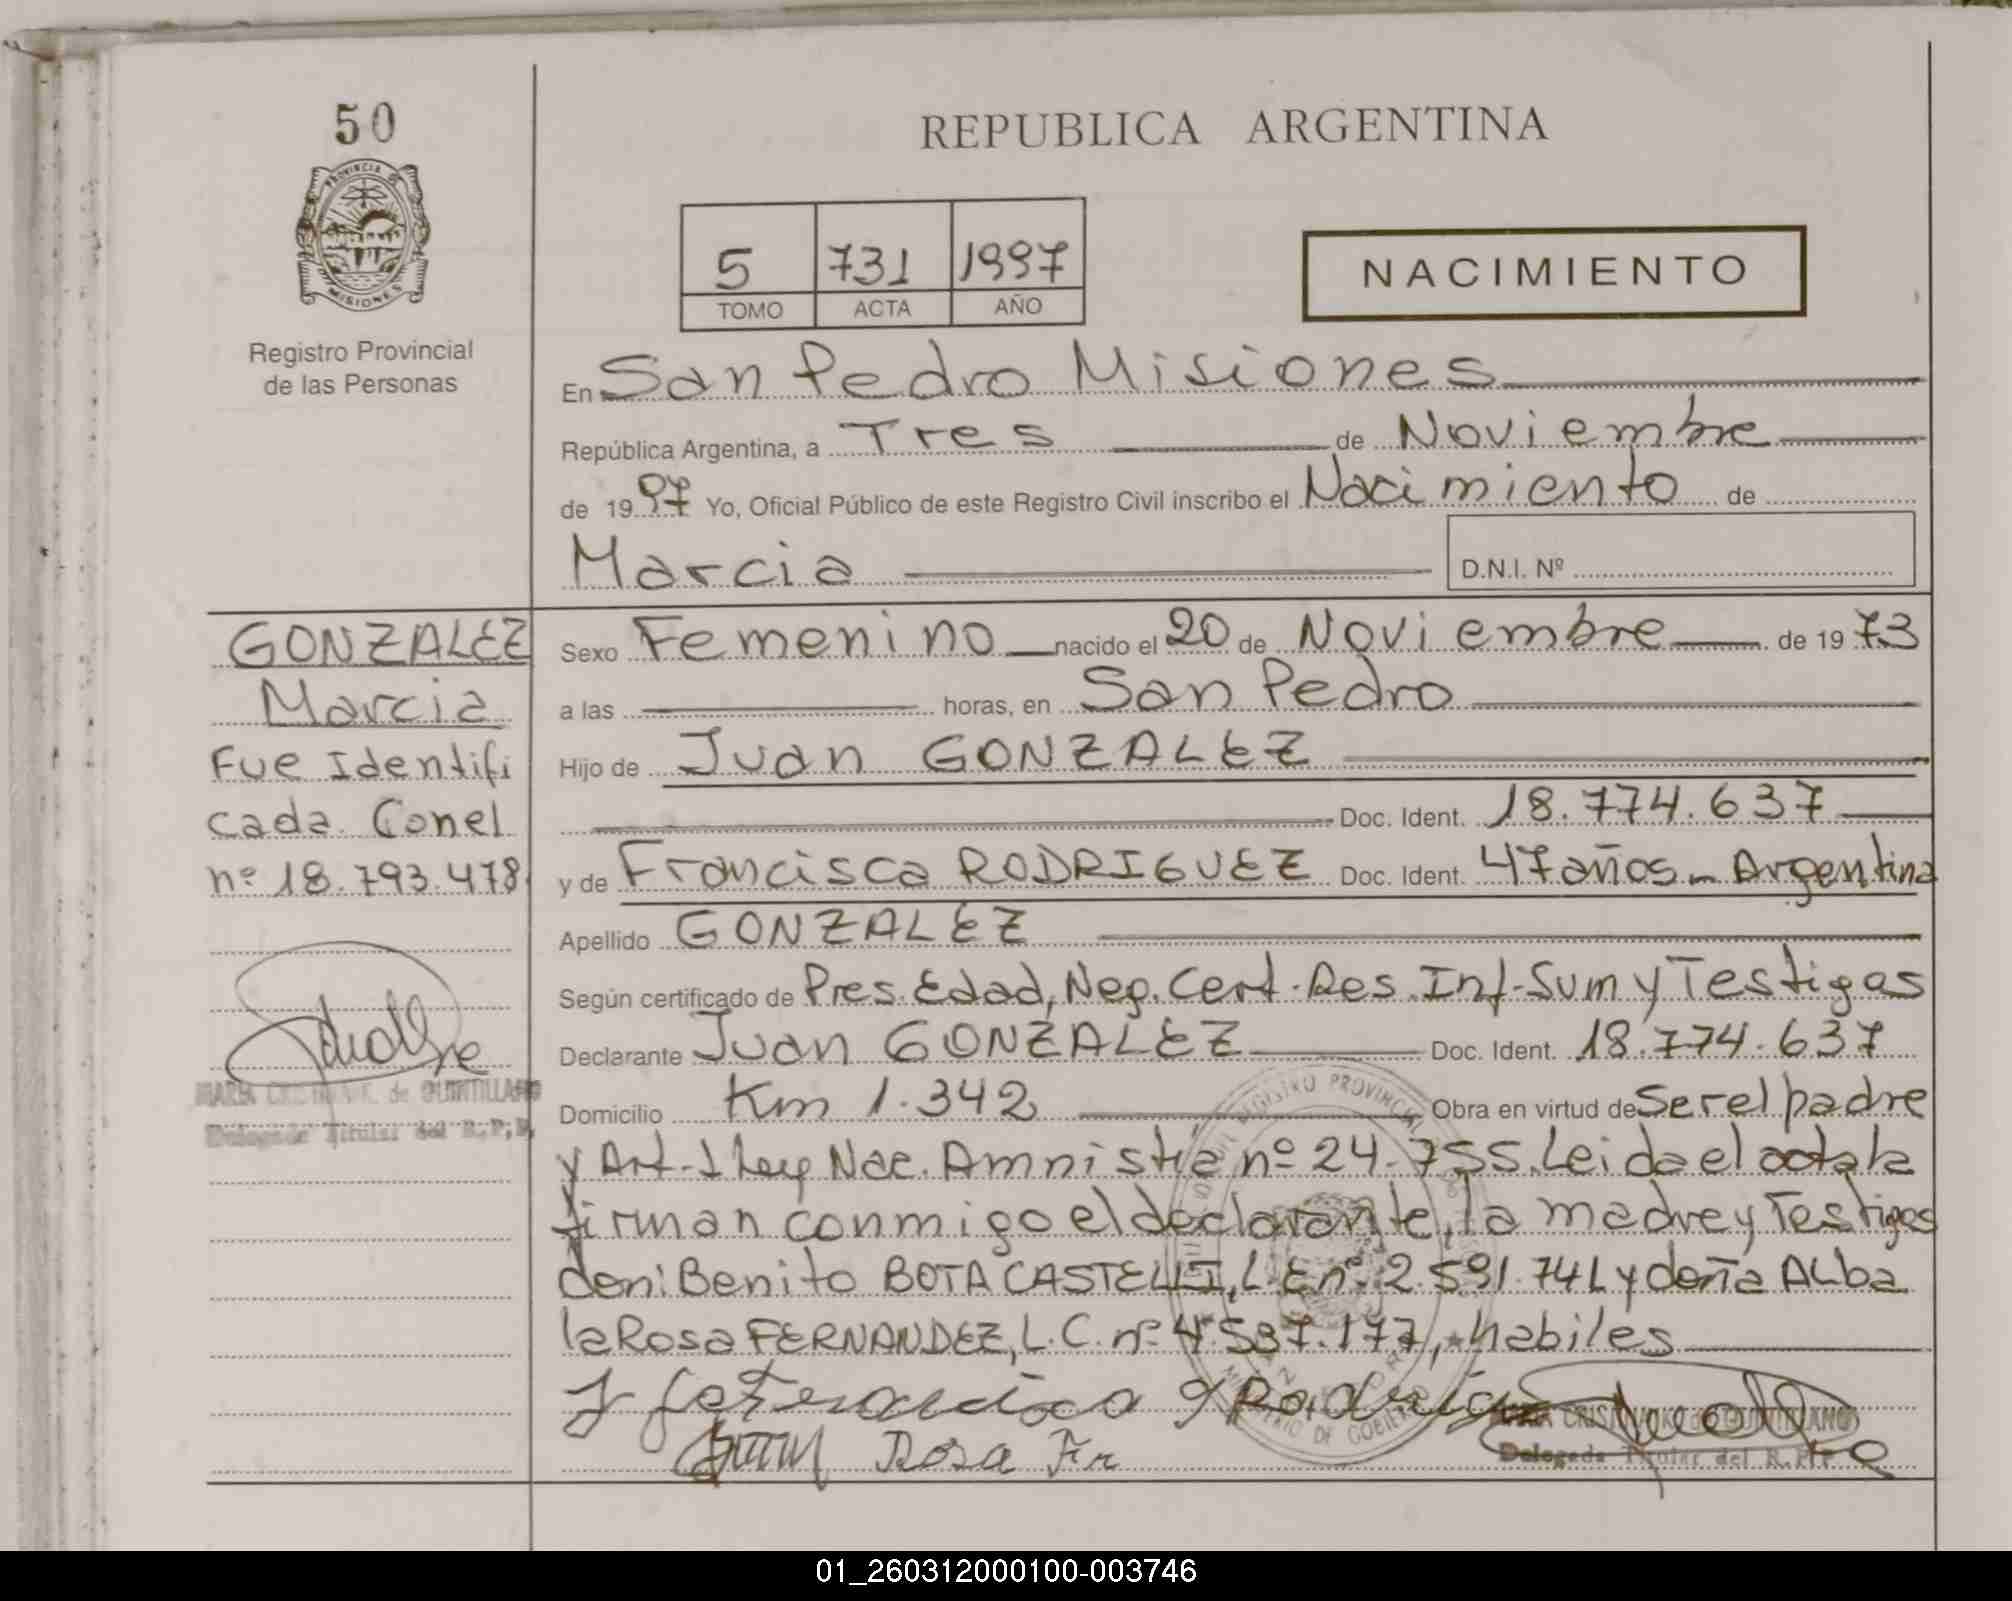 50
PROVINCIA DE
MISIONES
Registro Provincial
de las Personas
REPUBLICA ARGENTINA
5 731 1997
TOMO ACTA AÑO
NACIMIENTO
En San Pedro Misiones
República Argentina, a Tres de Noviembre
de 1997 Yo, Oficial Público de este Registro Civil inscribo el Nacimiento de
Marcia
D.N.I. Nº
GONZALEZ
Marcia
Fue Identifi
cada Conel
nº 18.793.478
MARIA CRISTINA K. de QUINTILLANO
Delegada Titular del R.P.P.
Sexo Femenino nacido el 20 de Noviembre de 1973
a las horas, en San Pedro
Hijo de Juan GONZALEZ
Doc. Ident. 18.774.637
y de Francisca RODRIGUEZ Doc. Ident. 47 años - Argentina
Apellido GONZALEZ
Según certificado de Pres. Edad, Neg. Cert. Des. Inf-Sum y Testigos
Declarante Juan GONZALEZ Doc. Ident. 18.774.637
Domicilio Km 1.342 Obra en virtud de Ser el padre
y Art-1 Ley Nac. Amnistia nº 24.755. Leida el acta la
firman conmigo el declarante, la madre y Testigos
don: Benito BOTA CASTELLI, L.E nº 2.591.741 y doña ALba
la Rosa FERNANDEZ, L.C. nº 4.537.177, habiles
REGISTRO PROVINCIAL
MINISTERIO DE GOBIERNO
Rosa Fr
Delegada Titular del R.P.P.
01_260312000100-003746